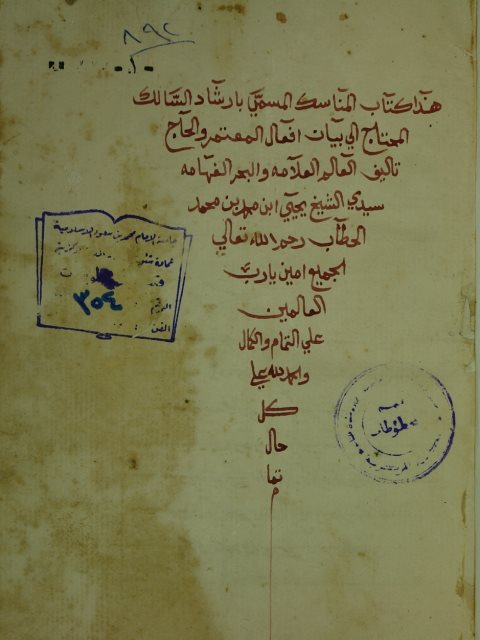 ٨٩٢
هذا كتاب المناسك المسمى بارشاد السالك
المحتاج الي بيان افعال المعتمر والحاج
تاليف العالم العلامه والبحر الفهامه
سيدي الشيخ يحيي ابن محمد بن محمد
الحطاب رحمه الله تعالي
الجميع امين يارب
العالمين
علي التمام والكمال
والحمد لله علي
كل
حال
تما
م
جامعة الامام محمد بن سعود الاسلامية
عمادة شئون
الرقم ٣٥٤
الفن
قسم